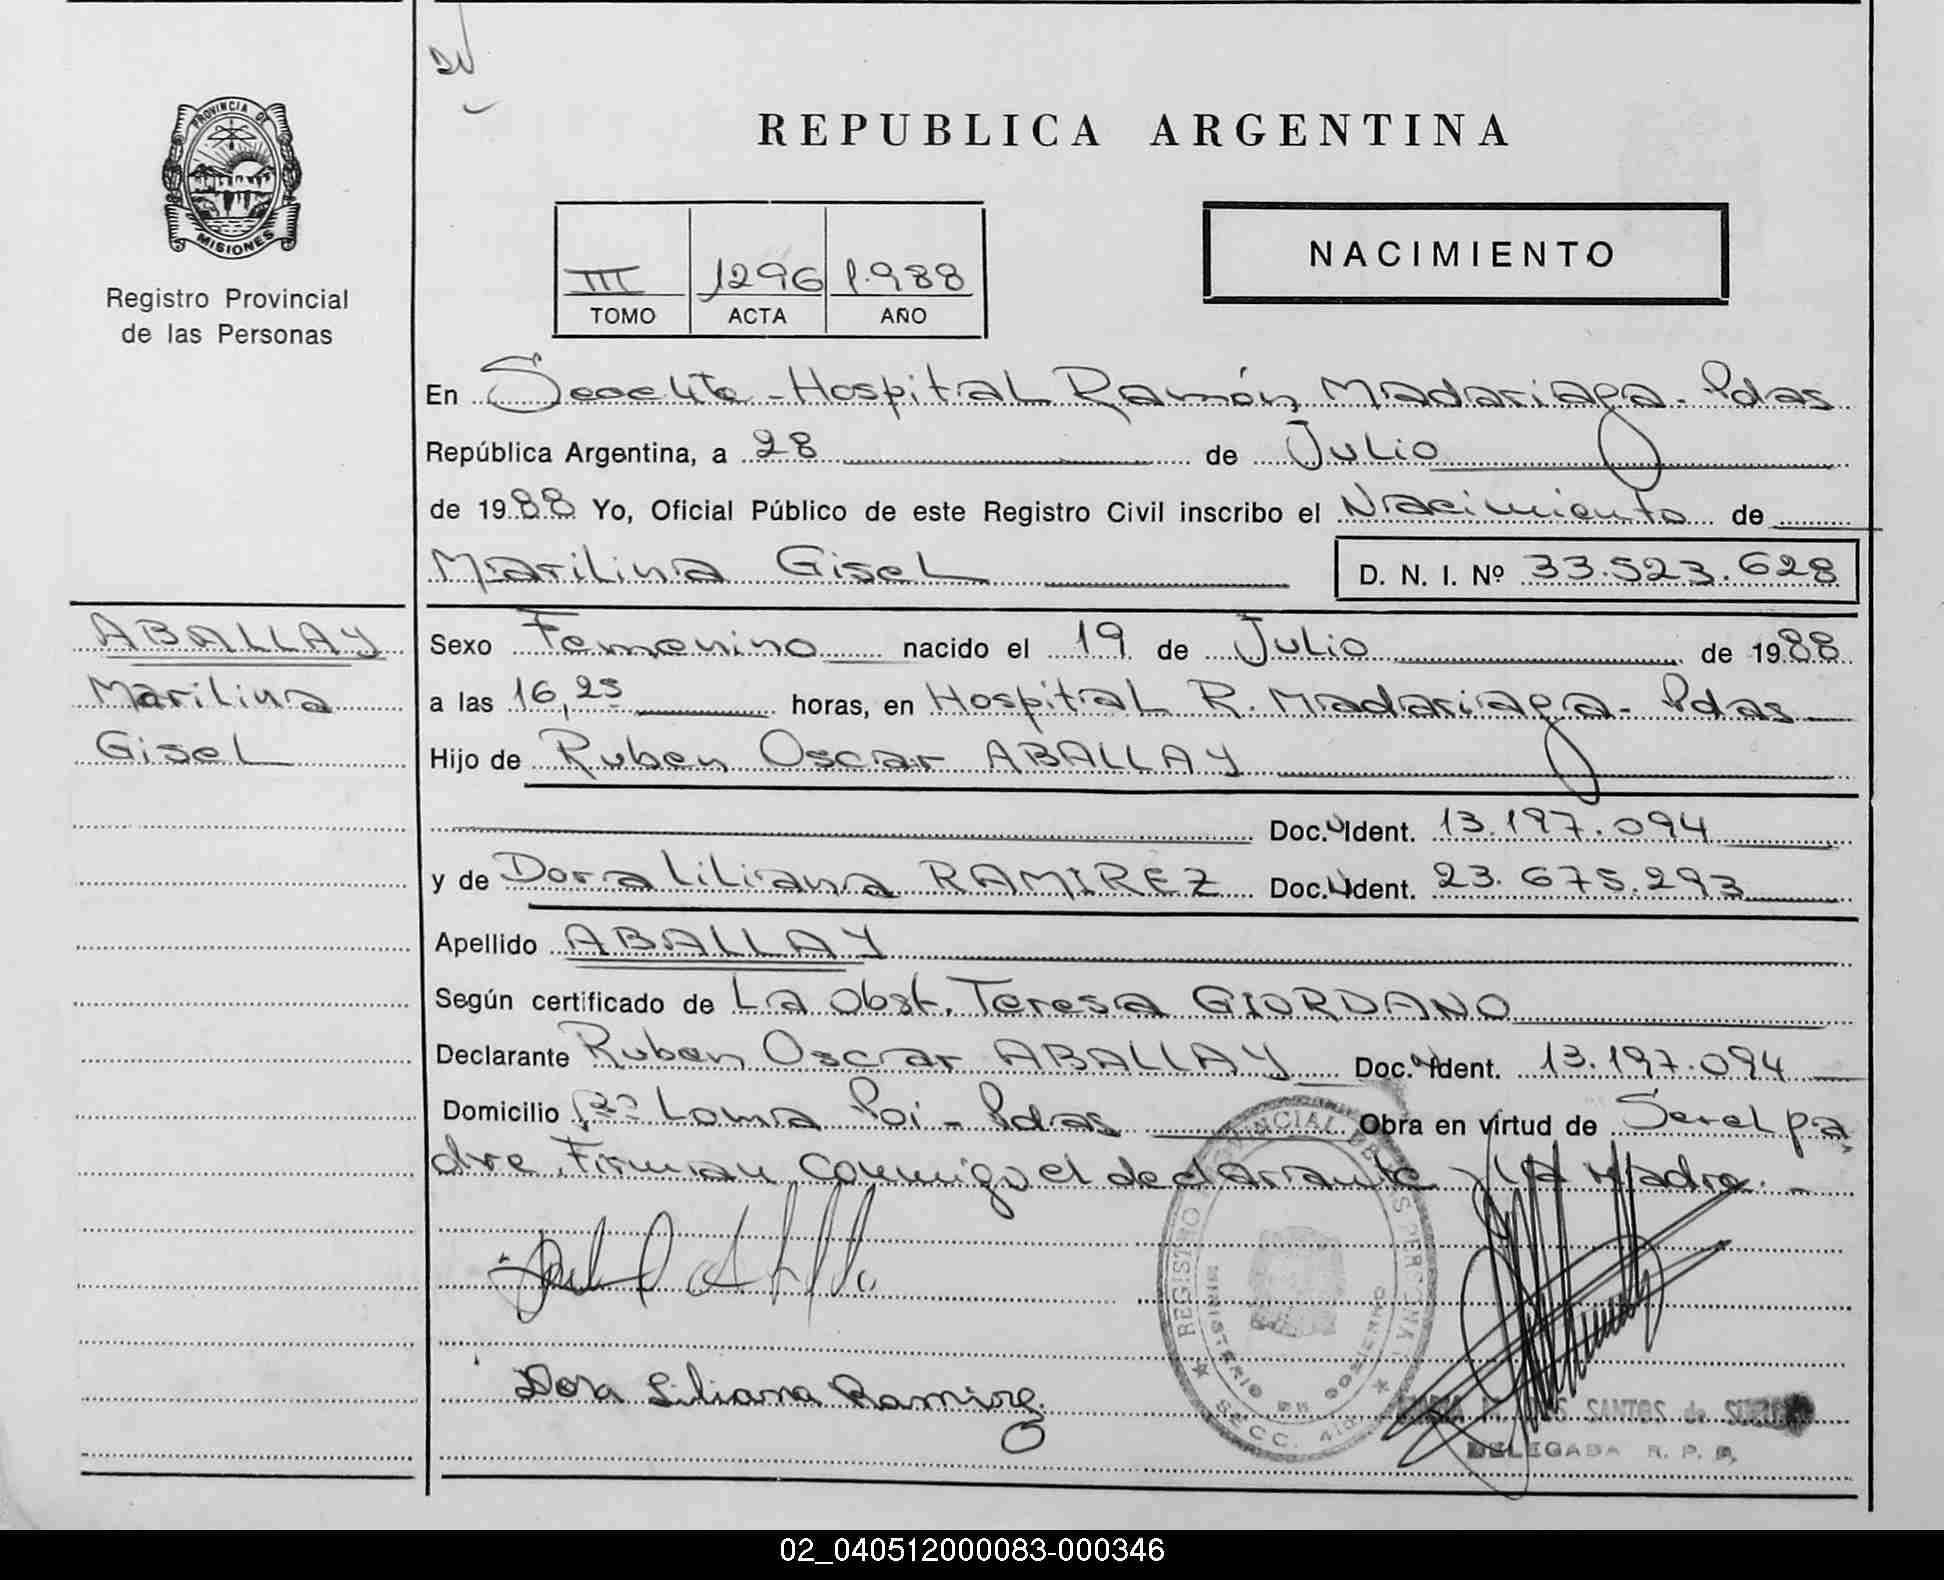 PROVINCIA DE
MISIONES
Registro Provincial
de las Personas
REPUBLICA ARGENTINA
III 1296 1.988
TOMO ACTA AÑO
NACIMIENTO
En Hospital Ramón Madariaga - Pdas
República Argentina, a 28 de Julio
de 1988 Yo, Oficial Público de este Registro Civil inscribo el Nacimiento de
Marilina Gisel D. N. I. Nº 33.523.628
ABALLAY
Marilina
Gisel
Sexo Femenino nacido el 19 de Julio de 1988
a las 16,25 horas, en Hospital R. Madariaga - Pdas
Hijo de Ruben Oscar ABALLAY
Doc. Ident. 13.197.094
y de Dora Liliana RAMIREZ Doc. Ident. 23.675.293
Apellido ABALLAY
Según certificado de La Obst. Teresa GIORDANO
Declarante Ruben Oscar ABALLAY Doc. Ident. 13.197.094
Domicilio Bº Loma Poi - Pdas Obra en virtud de Ser el pa
dre. Firman conmigo el declarante y la Madre. -
Dora Liliana Ramirez
REGISTRO PROVINCIAL DE LAS PERSONAS
MINISTERIO DE GOBIERNO
SECC. 410
SANTOS de
DELEGADA R. P. P.
02_040512000083-000346